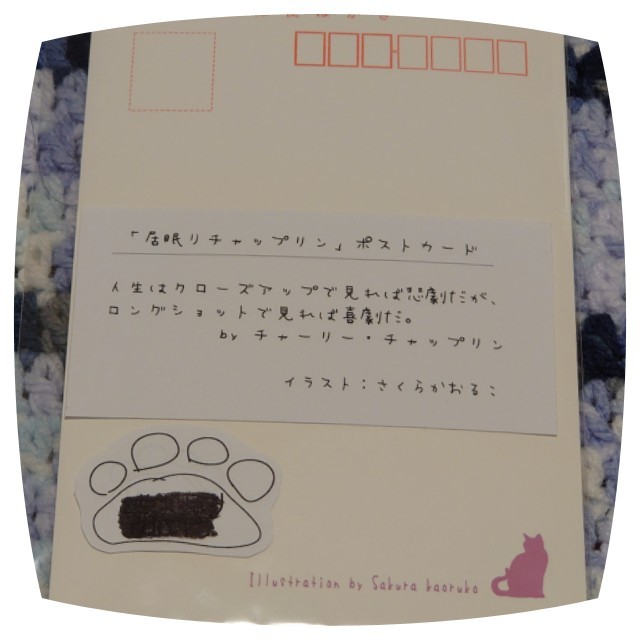 「居眠りチャップリン」ポストカード
人生はクローズアップで見れば悲劇だが、
ロングショットで見れば喜劇だ。
by チャーリー・チャップリン
イラスト：さくらかおるこ
Illustration by Sakura kaoruko